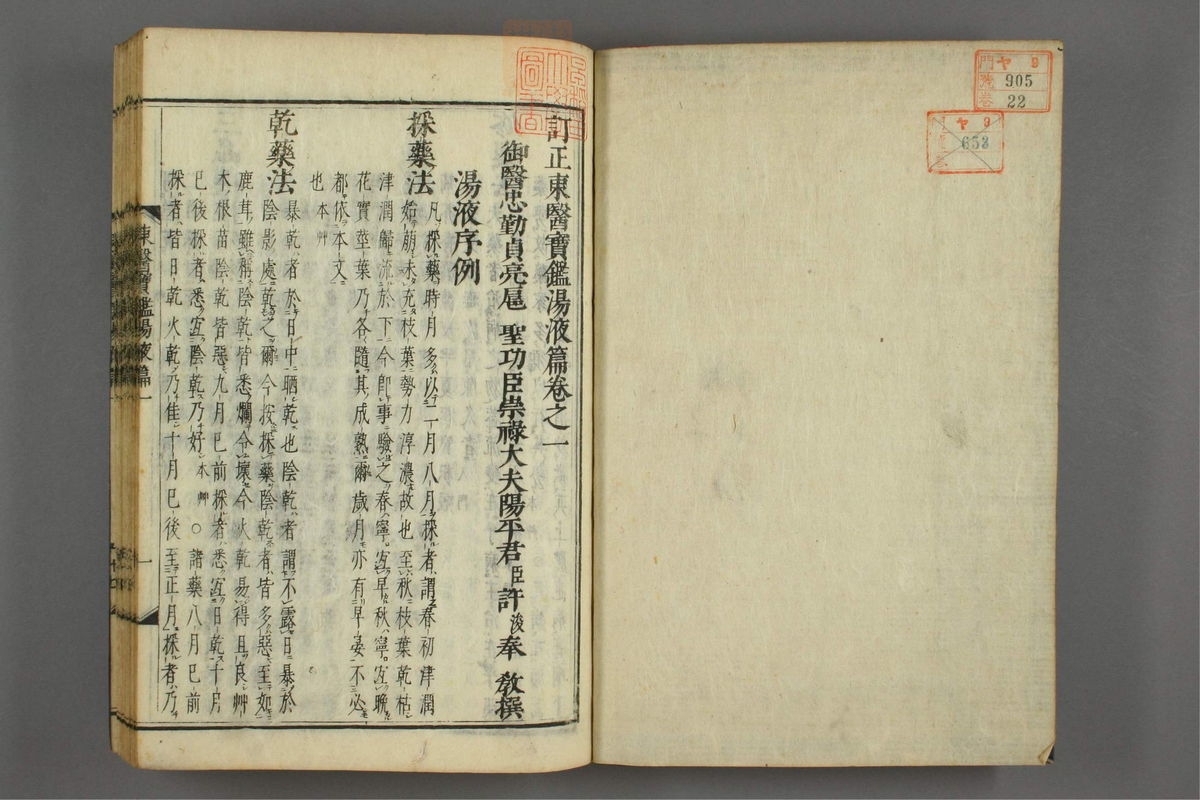 門 ヤ 9
號 905
卷 22
ヤ 9
653
訂正東醫寶鑑湯液篇卷之一
御醫忠勤貞亮扈 聖功臣崇祿大夫陽平君臣許浚奉 敎撰
湯液序例
採藥法 凡採藥時月多以二月八月採者謂春初津潤
始萠未充枝葉勢力淳濃故也至秋枝葉乾枯
津潤歸流於下今卽事驗之春寧宜早秋寧宜晚
花實莖葉乃各隨其成熟爾歲月亦有早晏不必
都依本文
也本艸
乾藥法 暴乾者於日中晒乾也陰乾者謂不露日暴於
陰影處乾之爾今按採藥陰乾者皆多惡至如
鹿茸雖稱陰乾皆悉爛令壞今火乾易得且良艸
木根苗陰乾皆惡九月巳前採者悉宜日乾十月
巳後採者悉宜陰乾乃好本艸○諸藥八月巳前
採者皆日乾火乾乃佳十月巳後至正月採者乃
東醫寶鑑湯液篇一
一